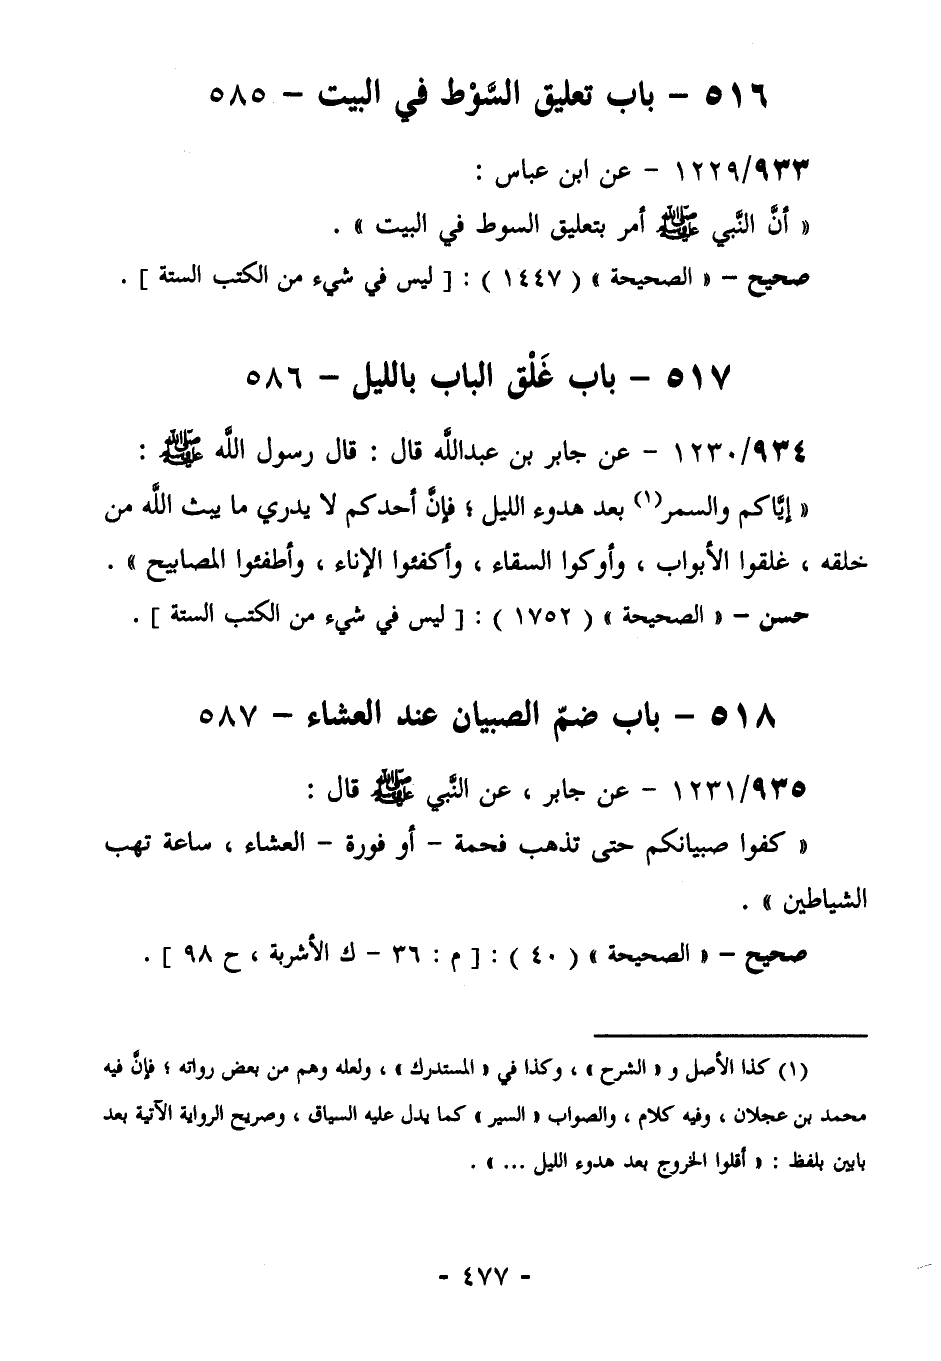 ٥١٦ – باب تعليق السَّوْط في البيت – ٥٨٥
١٢٢٩/٩٣٣ – عن ابن عباس :
« أنَّ النَّبي ﷺ أمر بتعليق السوط في البيت » .
صحيح – « الصحيحة » ( ١٤٤٧ ) : [ ليس في شيء من الكتب الستة ] .
٥١٧ – باب غَلْق الباب بالليل – ٥٨٦
١٢٣٠/٩٣٤ – عن جابر بن عبداللَّه قال : قال رسول اللَّه ﷺ :
« إيَّاكم والسمر(١) بعد هدوء الليل ؛ فإنَّ أحدكم لا يدري ما يبث اللَّه من
خلقه ، غلقوا الأبواب ، وأوكوا السقاء ، وأكفئوا الإناء ، وأطفئوا المصابيح » .
حسن – « الصحيحة » ( ١٧٥٢ ) : [ ليس في شيء من الكتب الستة ] .
٥١٨ – باب ضمّ الصبيان عند العشاء – ٥٨٧
١٢٣١/٩٣٥ – عن جابر ، عن النَّبي ﷺ قال :
« كفوا صبيانكم حتى تذهب فحمة – أو فورة – العشاء ، ساعة تهب
الشياطين » .
صحيح – « الصحيحة » ( ٤٠ ) : [ م : ٣٦ – ك الأشربة ، ح ٩٨ ] .
(١) كذا الأصل و « الشرح » ، وكذا في « المستدرك » ، ولعله وهم من بعض رواته ؛ فإنَّ فيه
محمد بن عجلان ، وفيه كلام ، والصواب « السير » كما يدل عليه السياق ، وصريح الرواية الآتية بعد
بابين بلفظ : « أقلوا الخروج بعد هدوء الليل ... » .
- ٤٧٧ -